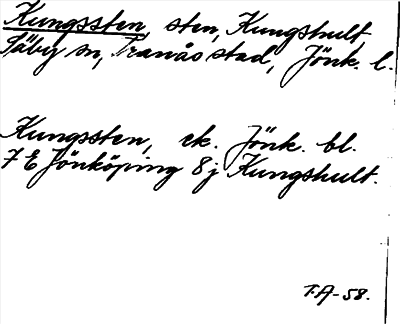 Kungssten, sten, Kungshult
Säby sn, Tranås stad, Jönk. l.
Kungssten, ek. Jönk. bl.
7 E Jönköping 8 j Kungshult.
T.A-58.